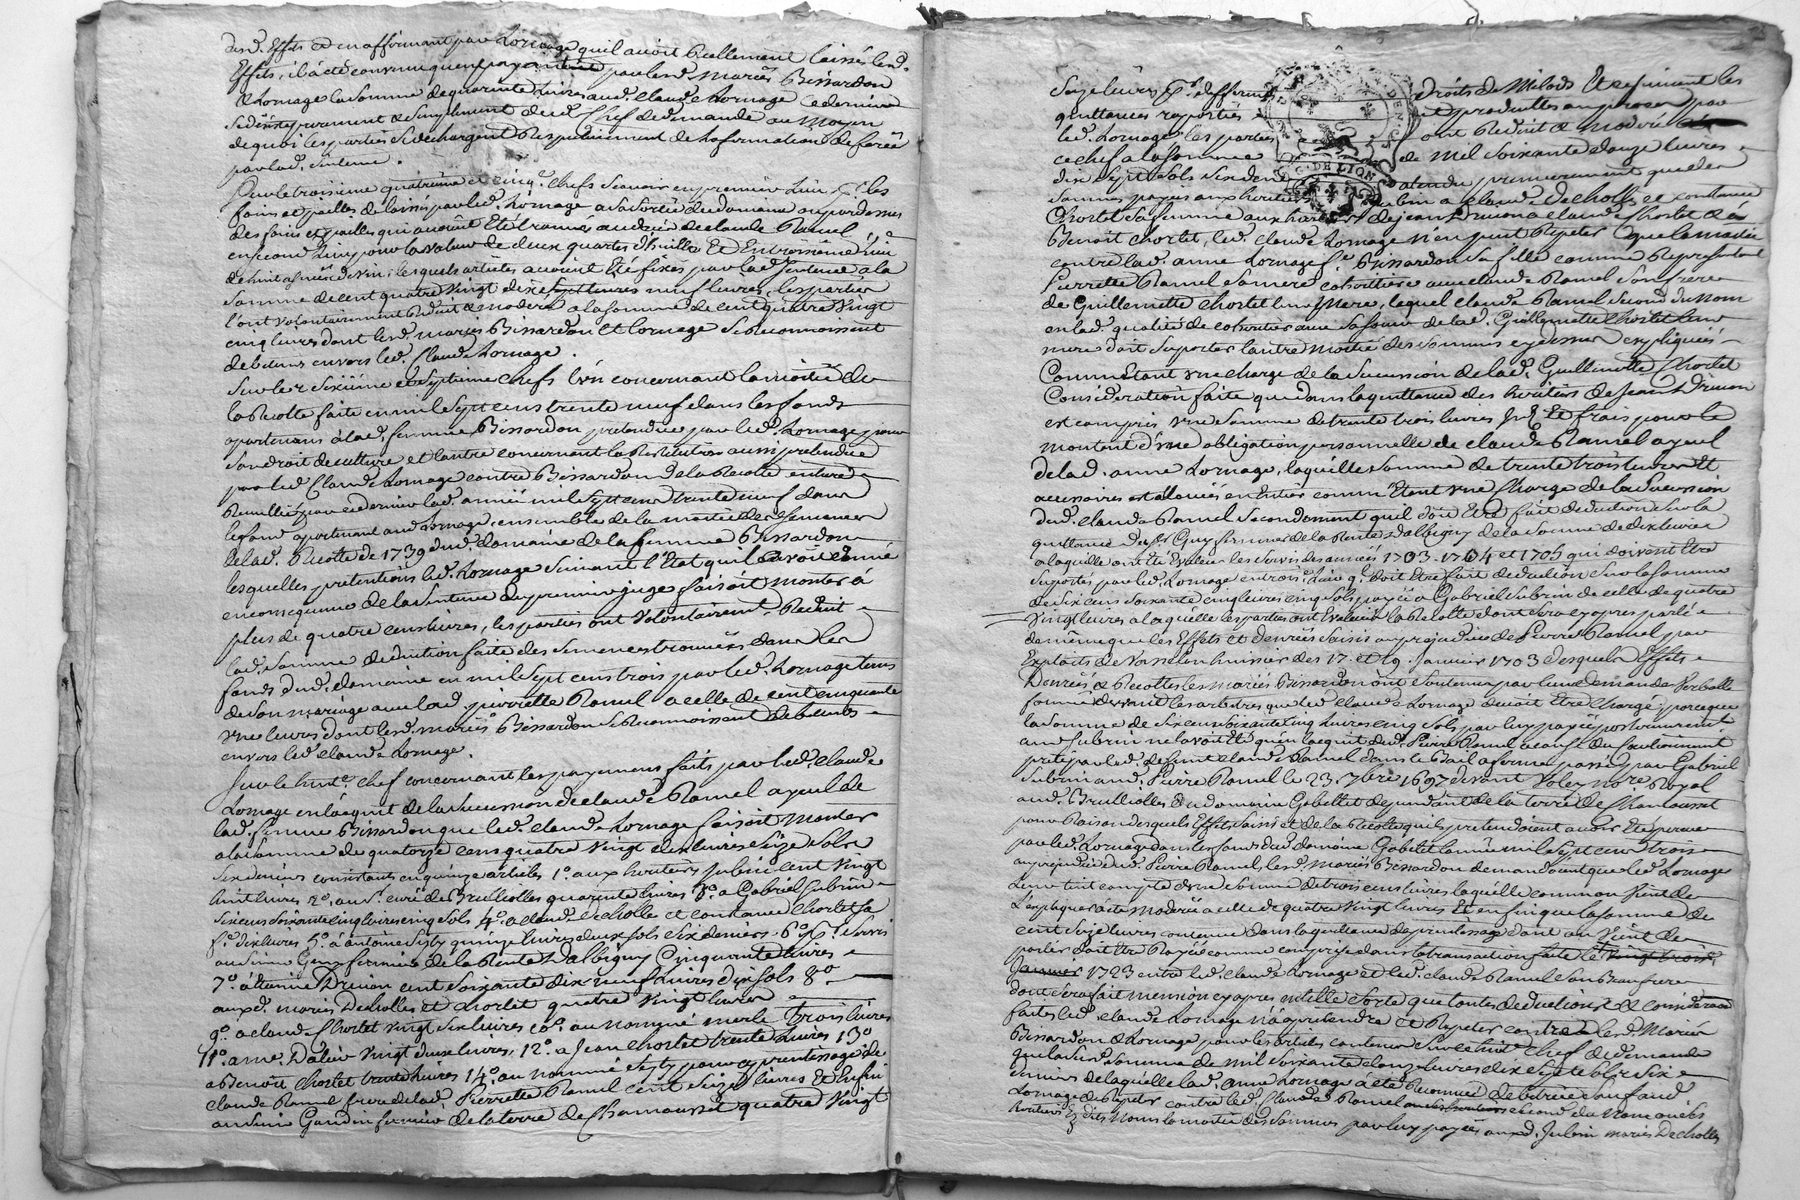 desd. Effets et en affirmant par Lornage quil avoit Reellement laissés lesd.
Effets, il a été convenu qu'en payant par lesd. mariés Bissardon
& Lornage la somme de quarante livres aud. Claude Lornage ce dernier
se départ purement & simplement dud. chef de demande au moyen
de quoi les parties se dechargent Respectivement de la formation
par lad. sentence.
Sur le troisieme quatrieme et cinq.e chefs scavoir en premier lieu p.r les
foins et pailles delaissés par led. Lornage a sa sortie du domaine
des foins et pailles qui avoient Eté de claude Ramel
en second lieu pour la valeur de deux quartes d'huille Et En troisieme lieu
de huit asnées de vin, lesquels articles avoient Eté fixés par lad. sentence à la
somme de cent quatre vingt dix livres neuf livres, les parties
l'ont volontairement Reduit & moderé a la somme de cent quatre vingt
cinq livres dont lesd. mariés Bissardon et Lornage se Reconnoissent
debiteurs envers led. Claude Lornage.
Sur les sixiême et septieme chefs l'un concernant la moitié de
la Recolte faite en mil sept cens trente neuf dans les fonds
apartenans à lad. femme Bissardon pretendue par led. Lornage pour
son droit de culture et l'autre concernant la Restitution aussi pretendue
par led. Claude Lornage contre Bissardon de la Recolte entiere
Recueillie par ce dernier lad. année mil sept cens trente neuf dans
le fond apartenant aud. Lornage, ensemble de la moitié des semences
de lad. Recolte de 1739 dud. domaine de la femme Bissardon
lesquelles pretentions led. Lornage suivant l'Etat quil avoit donné
en consequence de la sentence du premier juge faisoit monter à
plus de quatre cens livres, les parties ont volontairem.t Reduit
lad. somme deduction faite des semences trouvées dans les
fonds dud. domaine en mil sept cens trois par led. Lornage lors
de son mariage avec lad. pierrette Ramel a celle de cent cinquante
une livres dont lesd. mariés Bissardon se Reconnoissent debiteurs
envers led. claude Lornage.
Sur le huit.e chef concernant les payemens faits par led. claude
Lornage en l'acquit de la succession de claude Ramel ayeul de
lad. femme Bissardon que led. claude Lornage faisoit monter
a la somme de quatorze cens quatre vingt livres seize sols
six deniers consistants en quinze articles 1.o aux heritiers Jubin cent vingt
huit livres 2.o au s.r curé de Brullioles quarante livres 3.o a Gabriel Subrin
six cens soixante cinq livres cinq sols 4.o a claude Decholles et constance Chortet sa
f.e dix livres 5.o à antoine quinze livres deux sols six deniers, 6.o p.r servis
au sieur Guy fermier de la Rente d'albigny cinquante livres
7.o à Drivon cent soixante dix neuf livres dix sols 8.o
auxd. mariés Decholles et chortet quatre vingt livres
9.o a claude Chortet vingt six livres 10.o au nommé merle trois livres
11.o a me. Dalin vingt deux livres, 12.o a Jean chortet trente livres 13.o
a Benoit Chortet trente livres 14.o au nommé pour aprentissage de
claude Ramel frere de lad. Pierrette Ramel cent seize livres Et Enfin
au sieur Gaudin fermier de la terre de Chamousset quatre vingt
Seize livres p.r differents droits de Milods Et Examinant les
quittances raportées et produittes au procez par
led. Lornage les parties ont Reduit & moderé
ce chef a la somme de mil soixante douze livres
dix sept sols six deniers atendu premierement que des
sommes payées aux heritiers Jubin a claude Decholles et constance
Chortet sa femme aux heritiers de jean Drivon a claude Chortet & à
Benoit Chortet, led. claude Lornage n'en peut Repeter que la moitié
contre lad. anne Lornage f.e Bissardon sa fille comme Representant
Pierrette Ramel sa mere coheritiere avec claude Ramel son frere
de Guillemette Chortet leur Mere, lequel claude Ramel second du Nom
en lad. qualité de coheritier avec sa soeur de lad. Guillemette Chortet leur
mere doit suporter l'autre moitié des sommes cy dessus expliquées
Comm'Etant une charge de la succession de lad. Guillemette Chortet
Consideration faite que dans la quittance des heritiers de Jean Drivon
est compris une somme de trente trois livres Et frais pour le
montant d'une obligation personnelle de claude Ramel ayeul
de lad. anne Lornage, laquelle somme de trente trois livres Et
accessoires est allouée en Entier comm'Etant une Charge de la succession
dud. claude Ramel secondement quil doit Etre fait deduction sur la
quittance du s.r Guy fermier de la Rente d'albigny de la somme de dix livres
a laquelle ont Eté Evalués les servis des années 1703. 1704 et 1705 qui doivent Etre
suportés par led. Lornage en trois.e Lieu q.l doit Etre fait deduction sur la somme
de six cens soixante cinq livres cinq sols payée a Gabriel Subrin de celle de quatre
vingt livres a laquelle les parties ont Evalué la Recolte dont sera cy apres parlé
de même que les Effets et denrées saisis au prejudice de Pierre Ramel par
Exploits de huissier des 17. et 19. Janvier 1703 desquels Effets
Denrées & Recoltes les mariés Bissardon ont soutenu par leur demande Verballe
formée devant les arbitres que led. claude Lornage devoit Etre chargé, parceque
la somme de six cens soixante cinq livres cinq sols par luy payée posterieurement
aud. Subrin ne l'avoit Eté qu'en l'acquit dud. Pierre Ramel a cause du cautionnement
preté par led. defunt claude Ramel dans le Bail a ferme passé par Gabriel
Subrin aud. Pierre Ramel le 23. 7bre 1697 devant Not.re Royal
aud. Brullioles du domaine Gobettet dependant de la terre de Chamousset
pour Raison desquels Effets saisis et de la Recolte quils pretendoient avoir Eté perçue
par led. Lornage dans les fonds dud. domaine Gobettet l'année mil sept cens trois
au prejudice dud. Pierre Ramel, lesd. mariés Bissardon demandoient que led. Lornage
leur tint compte d'une somme de trois cens livres laquelle comme on vient de
l'expliquer a été moderée a celle de quatre vingt livres Et enfin que la somme de
cent seize livres contenue dans la quittance d'aprentissage dont on vient de
parler doit Etre Rejettée comme comprise dans la transaction faite le vingt trois
Janvier 1723 entre led. claude Lornage et led. claude Ramel son beau frere
dont sera fait mention cy apres en telle sorte que toutes deductions & considerations
faites led. claude Lornage n'a a pretendre et Repeter contre lesd. Mariés
Bissardon & Lornage pour les articles contenus sur ce huit.e chef de demande
que la susd. somme de mil soixante douze livres dix sept sols six
deniers de laquelle lad. anne Lornage a été Reconnue debitrice sauf aud.
Lornage de Repeter contre led. claude Ramel second du Nom ou ses
heritiers Es dits Noms la moitié des sommes par luy payées auxd. Jubin mariés Decholles